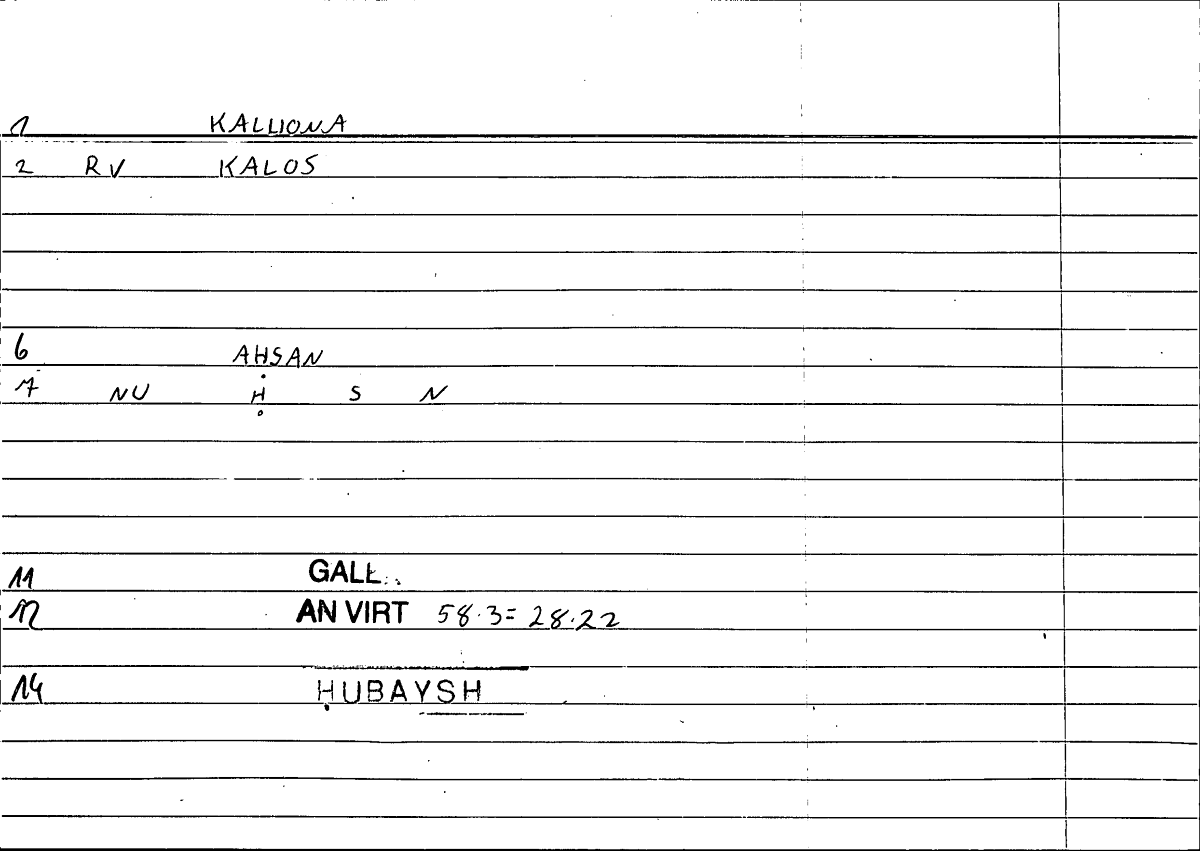 1 KALLIONA
2 RV KALOS
6 AHSAN
7 NU Ḥ S N
11 GALE
12 AN VIRT 58.3= 28.22
14 ḤUBAYSH